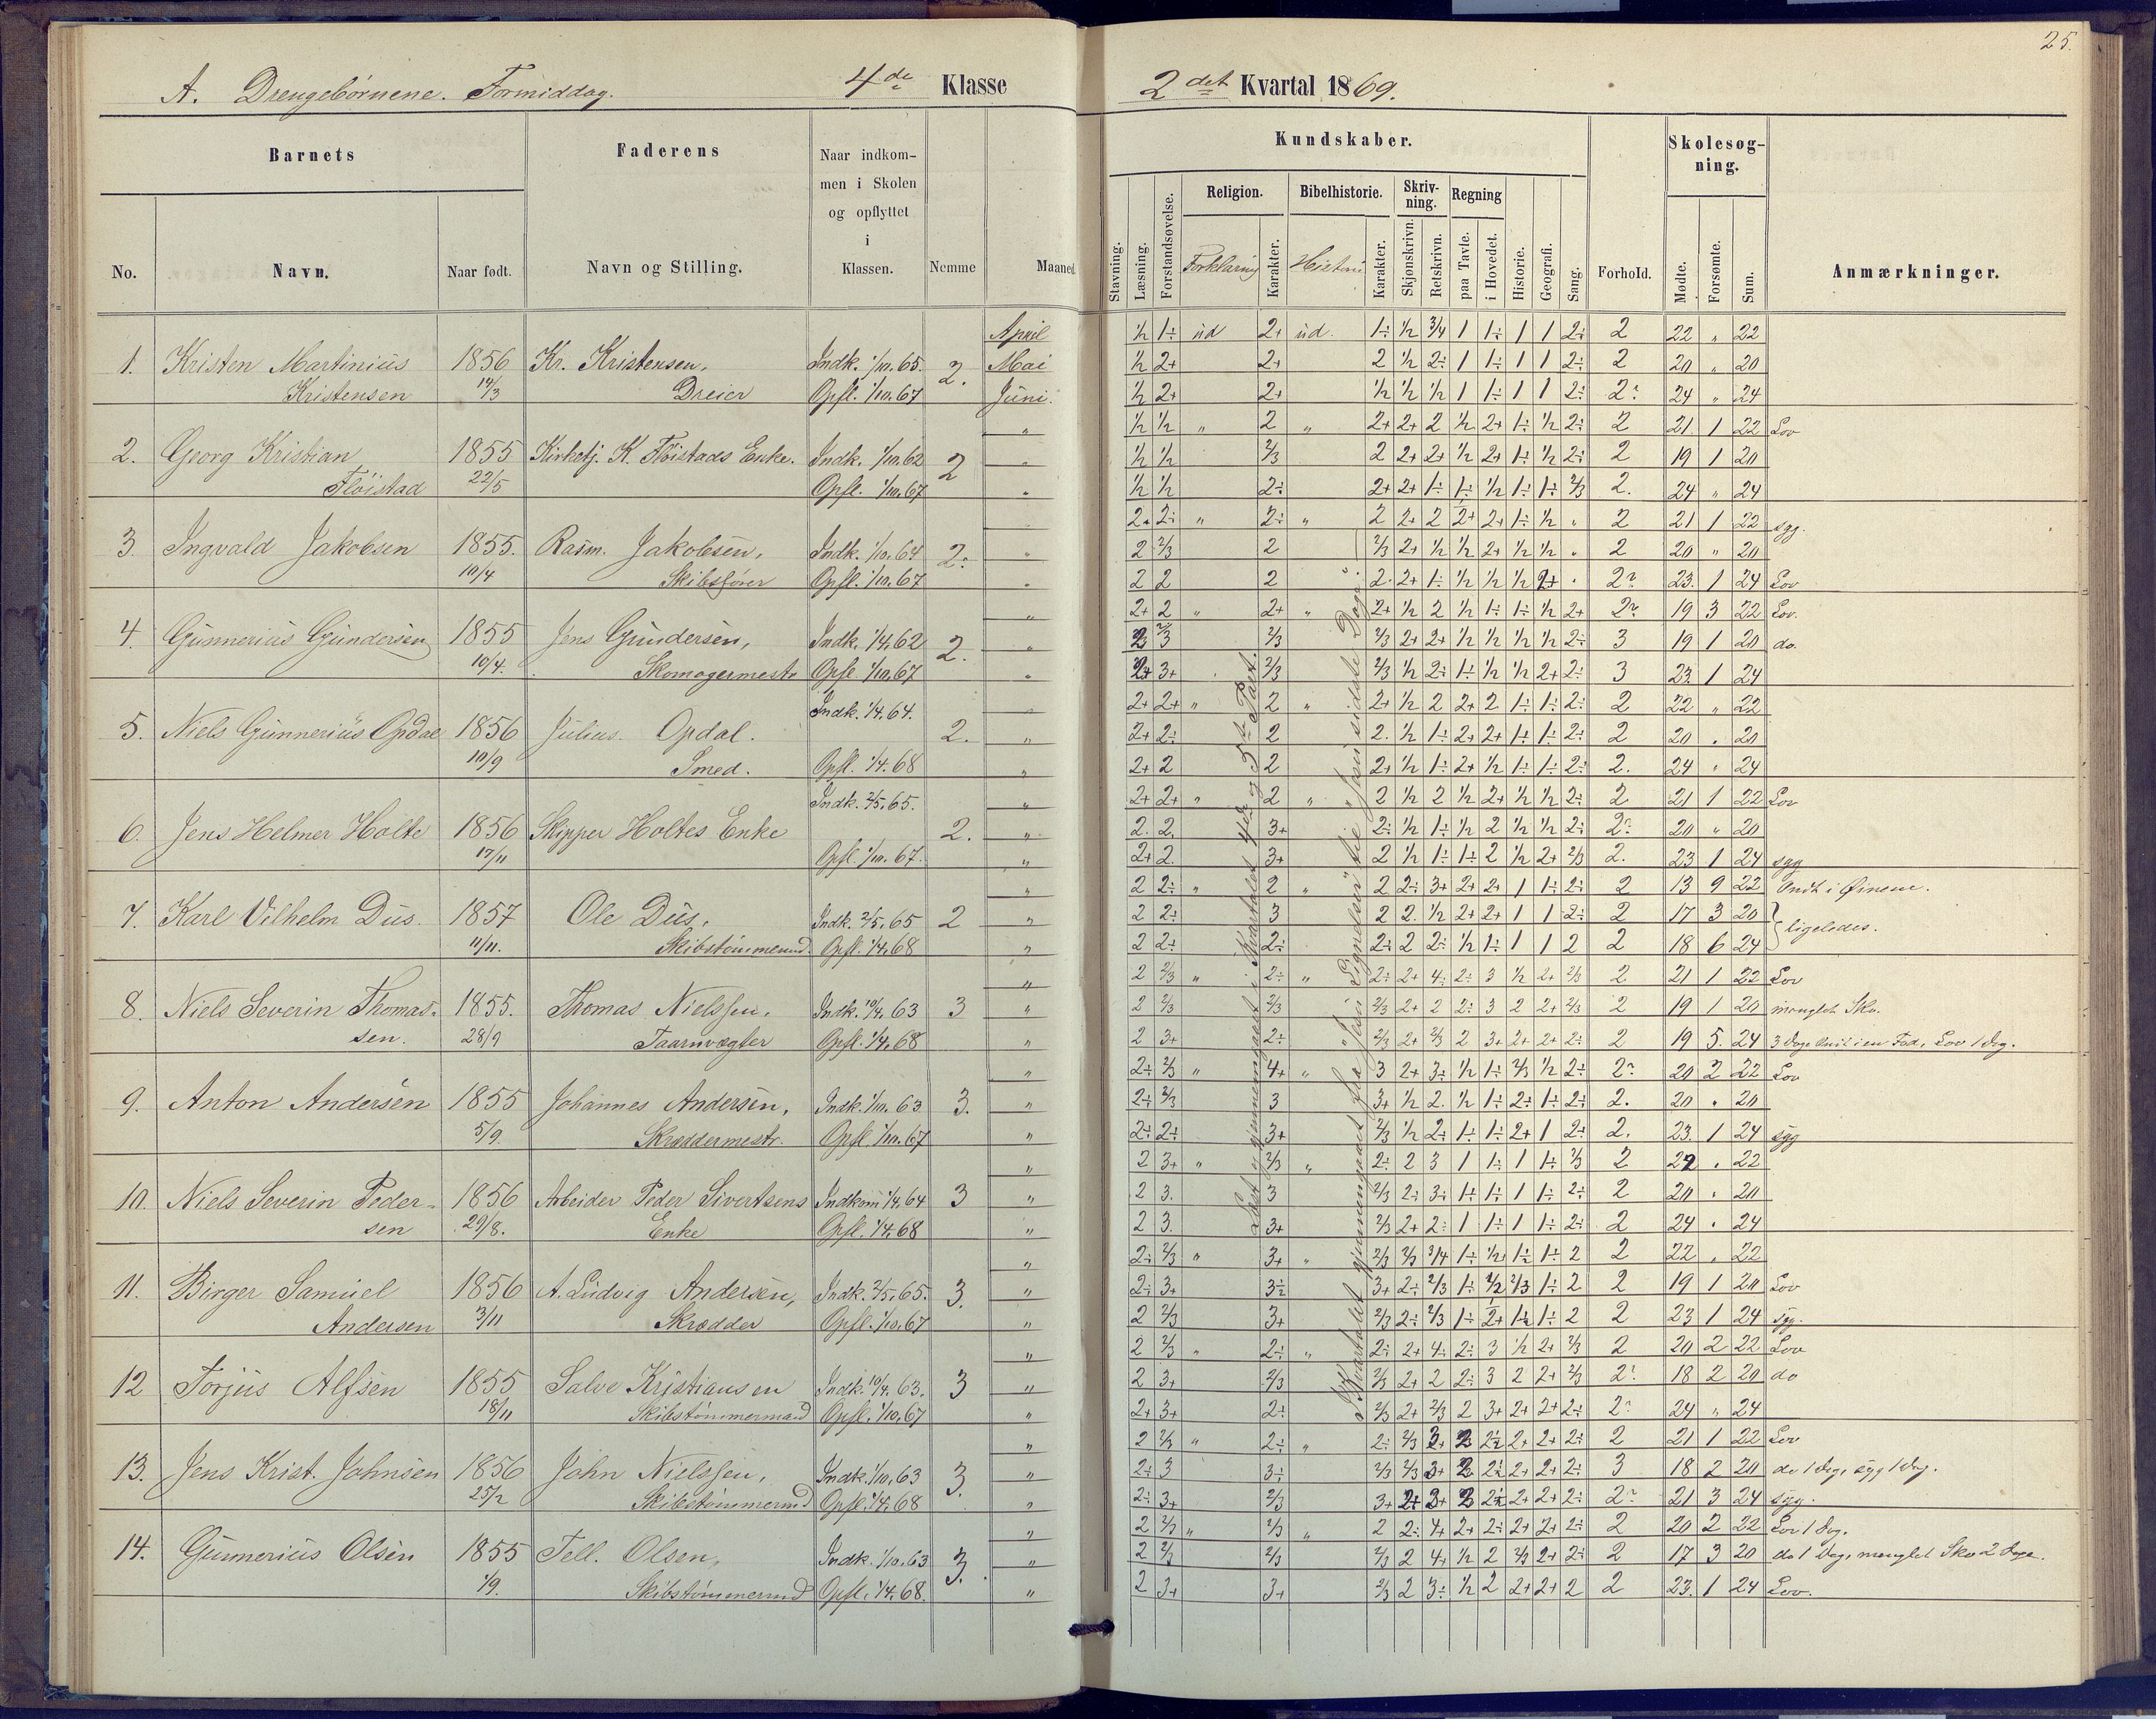 25.
A. Drengebørnene. Formiddag. 4de Klasse
2det Kvartal 1869.
Barnets
Faderens
Naar indkom-
men i Skolen
og opflyttet
i
Klassen.
No. Navn. Naar født. Navn og Stilling. Nemme Maaned
Kundskaber.
Skolesøg-
ning.
Religion. Bibelhistorie. Skriv-
ning. Regning
Stavning. Læsning. Forstandsøvelse. Forklaring Karakter. Historie Karakter. Skjønskrivn. Retskrivn. paa Tavle. i Hovedet. Historie. Geografi. Sang. Forhold. Mødte. Forsømte. Sum. Anmærkninger.
April ½ 1÷ ud 2+ ud. 1÷ ½ 3/4 1 1÷ 1 1 2÷ 2 22 „ 22
1. Kristen Martinius 1856 Kr. Kristensen, Indk. 1/10. 65. 2. Mai ½ 2+ 2+ 2 ½ 2÷ 1 1÷ 1 1 2÷ 2 20 „ 20
Kristensen 14/3 Dreier Opfl. 1/10. 67 Juni. ½ 2+ 2+ ½ ½ ½ 1 1÷ 1 1 2÷ 2? 24 „ 24
„ ½ ½ „ 2 „ 2+ 2+ 2 ½ 2+ 1÷ ½ 2÷ 2 21. 1 22 Lov
2. Georg Kristian 1855 Kirketj. K. Fløistads Enke. Indk. 1/10. 62 2 „ ½ ½ 2/3 2 2+ 2+ ½ 2+ 1÷ ½ 2÷ 2 19 1 20
Fløistad 22/5 Opfl. 1/10. 67 „ ½ ½ 2÷ 2+ 2+ 1÷ 1÷ ½ 1÷ 1÷ 2/3 2. 24 „ 24
2÷ „ 2÷ „ 2 2+ 2 2+ 2+ 1÷ ½ „ 2 21 1 22 syg.
3. Ingvald Jakobsen 1855. Rasm. Jakobsen, Indk. 1/10. 64 2÷ „ 2 2/3 2 2/3 2+ ½ ½ 2+ ½ ½ „ 2 20 „ 20
10/4 Skibsfører Opfl. 1/10. 67 „ 2 2 2 2. 2+ 1÷ ½ ½ ½ 2+ 2? 23. 1 24 Lov
„ 2+ 2 „ 2+ „ 2+ ½ 2 ½ 1÷ 1÷ ½ 2+ 2? 19 3 22 Lov.
4. Gunnerius Gundersen 1855 Jens Gundersen, Indk. 1/4. 62 2. „ 2/3 2/3 2+ 2+ ½ ½ ½ ½ 2÷ 3 19 1 20 do.
10/4. Skomagermestr Opfl. 1/10. 67 „ 3+ 2/3 2/3 ½ 2÷ 1÷ ½ ½ 2+ 2÷ 3 23. 1 24
Indk. 1/4. 64. „ 2+ 2+ „ 2 „ 2+ ½ 2 2+ 2 1÷ 1÷ 2÷ 2 22 „ 22
5. Niels Gunnerius Opdal 1856 Julius Opdal. 2. „ 2+ 2÷ 2 2. ½ 1÷ 2+ 2+ 1÷ 1÷ 2÷ 2 20 „ 20
10/9 Smed. Opfl. 1/4. 68 „ 2+ 2 2 2+ ½ 1÷ 2+ ½ 1÷ 1÷ 2÷ 2. 24 „ 24
Indk. 2/5. 65. „ 2+ 2+ „ 2 „ 2 ½ 2 ½ 2+ ½ ½ 2÷ 2 21 1 22 Lov
6. Jens Helmer Holte 1856 Skipper Holtes Enke 2. „ 2. 2. 3+ 2÷ ½ 1÷ ½ 2 ½ ½ 2÷ 2? 20 „ 20
17/11 Opfl. 1/10. 67. „ 2+ 2. 3+ 2 ½ 1÷ 1÷ 2 ½ 2+ 2/3 2. 23 1 24 syg
„ 2 2÷ „ 2 „ 2 2÷ 3+ 2+ 2+ 1 1÷ 2÷ 2 13 9 22 Ondt i Øinene.
7. Karl Vilhelm Dus. 1857 Ole Dus, Indk. 2/5. 65 2 „ 2 2÷ 3 2 2. ½ 2+ 2+ 1 1 2÷ 2 17 3 20 } ligeledes.
11/11. Skibstømmermd. Opfl. 1/4. 68 „ 2 2÷ 2÷ 2÷ 2 2÷ ½ 1÷ 1 1 2 2 18 6 24
„ 2 2/3 „ 2÷ „ 2÷ 2+ 4÷ 2÷ 3 ½ 2+ 2/3 2 21 1 22 Lov
8. Niels Severin Thomas- 1855. Thomas Nielssen, Indk. 10/4. 63 3 „ 2 2/3 2/3 2/3 2+ 2 2÷ 3 2 2+ 2/3 2 19 1 20 manglet Sko.
sen. 28/9 Taarnvægter Opfl. 1/4. 68 „ 2 3+ 2÷ 2/3 2+ 2/3 2 3+ 2+ 2+ 2÷ 2 19 5. 24 3 Dage Ondt i en Fod, Lov 1 Dag.
„ 2÷ 2/3 „ 4+ „ 3 2+ 3÷ ½ 1÷ 2/3 ½ 2÷ 2? 20 2 22 Lov
9. Anton Andersen 1855 Johannes Andersen, Indk. 1/10. 63 3. „ 2÷ 2/3 3 3+ ½ 2. ½ 1÷ 2÷ 1÷ 2÷ 2. 20 „ 20
5/9. Skræddermestr. Opfl. 1/10. 67 „ 2÷ 2÷ 3+ 2/3 ½ 2÷ 1÷ 1÷ 2+ 1 2÷ 2. 23. 1 24 syg
„ 2 3+ „ 2/3 „ 2÷ 2 3 1 1÷ 1 1÷ 2/3 2 22 . 22
10. Niels Severin Peder- 1856 Arbeider Peder Sivertsens Indkom 1/4. 64 3 „ 2 3. 3 2/3 2÷ 3÷ 1÷ 1÷ 1 1÷ 2÷ 2 20 . 20
sen 29/8. Enke Opfl. 1/4. 68 „ 2 3. 3+ 2/3 2+ 2÷ 1 1÷ 1 1÷ 2÷ 2 24 . 24
„ 2÷ 2/3 „ 3+ „ 2/3 2/3 3/4 1÷ ½ 1÷ 1÷ 2 2 22 „ 22
11. Birger Samuel 1856 A. Ludvig Andersen, Indk. 2/5. 65. 3. „ 2÷ 3+ 3÷ 3+ 2÷ 2/3 1÷ ½ 2/3 1÷ 2 2 19 1 20 Lov
Andersen 3/11 Skrædder Opfl. 1/10. 67 „ 2 2/3 3+ 2/3 2÷ 2/3 1÷ 2+ 1÷ 1÷ 2 2 23 1 24 syg.
„ 2 2/3 „ 2÷ „ 2÷ 2+ 4÷ 2÷ 3 ½ 2+ 2/3 2 20 2 22 Lov
12 Torjus Alfsen 1855 Salve Kristiansen Indk. 10/4. 63. 3 „ 2 3+ 2/3 2/3 2+ 2 2÷ 3 2 2+ 2/3 2? 18 2 20 do
18/11 Skibstømmermand Opfl. 1/10. 67 „ 2+ 3+ 2÷ 2/3 2+ 2/3 2 3+ 2+ 2+ 2÷ 2? 24 „ 24
„ 2 2/3 „ 2÷ „ 2÷ 2/3 3+ 2 2÷ 2+ 2+ 2÷ 2 21 1 22 Lov
13. Jens Krist. Johnsen 1856 John Nielssen, Indk. 1/10. 63 3. „ 2÷ 3 3÷ 2/3 2/3 3+ 2 2÷ 2+ 2+ 2÷ 3 18 2 20 do 1 Dag, syg 1 Dag.
25/2 Skibstømmermd Opfl. 1/4. 68 „ 2÷ 3+ 2/3 3+ 2+ 3+ 2 2÷ 2+ 2+ 2÷ 2? 21 3 24 syg.
„ 2 2/3 „ 2/3 „ 2 2÷ 4+ 2+ 2÷ 2+ 2+ 2÷ 2 20 2 22 Lov 1 Dag.
14. Gunnerius Olsen 1855 Tell. Olsen, Indk. 1/10. 63 3. „ 2 2/3 2/3 2/3 2 4+ ½ 2 2/3 2+ 2÷ 2 17 3 20 do 1 Dag, manglet Sko 2 Dage.
1/9. Skibstømmermd Opfl. 1/4. 68. „ 2 3+ 3+ 2/3 2 3÷ ½ 2 2+ 2+ 2 2 23. 1 24 Lov.
Læst og gjennemgaaet i Kvartalet 4de og 5te Part.
I Kvartalet gjennemgaaet fra „Jesu Lignelser“ til „Jesu sidste Dage“.